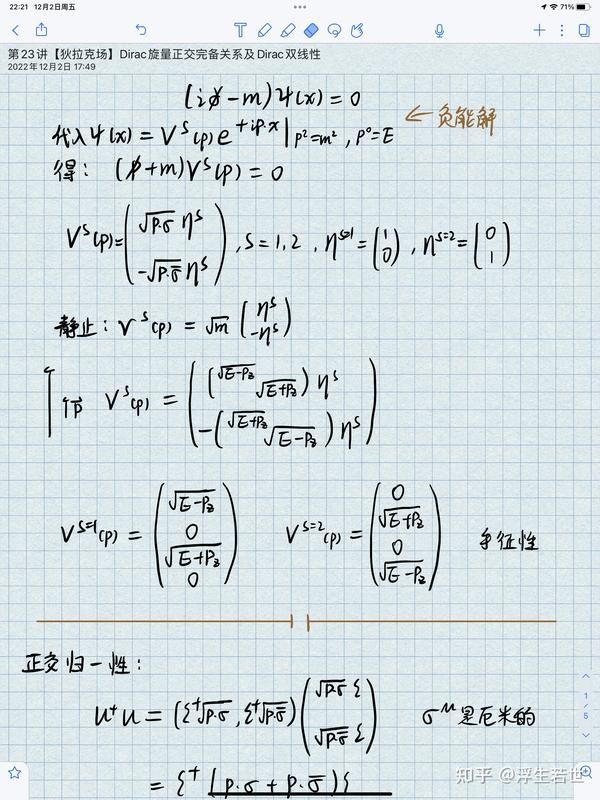 22:21 12月2日周五
71%
第23讲【狄拉克场】Dirac旋量正交完备关系及Dirac双线性
2022年12月2日 17:49
(i∂̸-m)Ψ(x)=0
代入Ψ(x)=V^S(p)e^{+ip·x}|p²=m², p⁰=E ← 负能解
得: (p̸+m)V^S(p)=0
V^S(p)=(√p·σ η^S, -√p·σ̄ η^S), S=1,2, η^{S=1}=(1 0), η^{S=2}=(0 1)
静止: V^S(p)=√m (η^S -η^S)
V^S(p)=((√E-Pz √E+Pz)η^S -(√E+Pz √E-Pz)η^S)
V^{S=1}(p)=(√E-Pz 0 √E+Pz 0) V^{S=2}(p)=(0 √E+Pz 0 √E-Pz) 手征性
正交归一性:
u⁺u=(ξ⁺√p·σ, ξ⁺√p·σ̄)(√p·σ ξ √p·σ̄ ξ) σ^μ是厄米的
=ξ⁺(p·σ+p·σ̄)ξ
1
5
知乎 @浮生若世